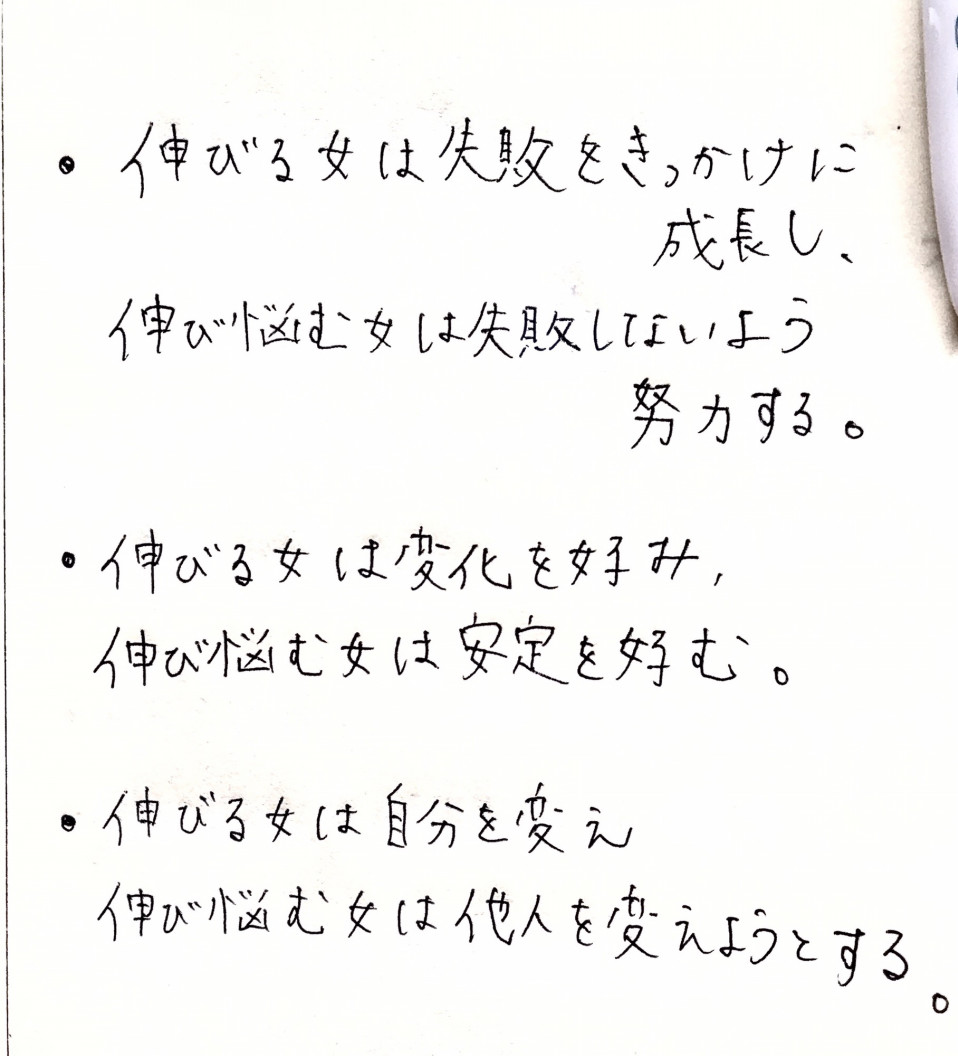 ・伸びる女は失敗をきっかけに
成長し、
伸び悩む女は失敗しないよう
努力する。
・伸びる女は変化を好み,
伸び悩む女は安定を好む。
・伸びる女は自分を変え
伸び悩む女は他人を変えようとする。